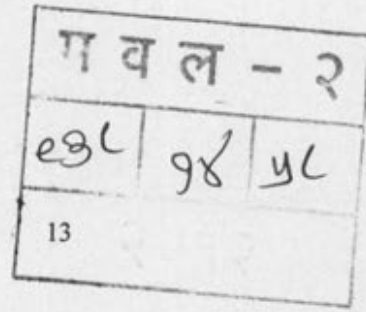 प व ल - २
९३८ १४ ५८
13